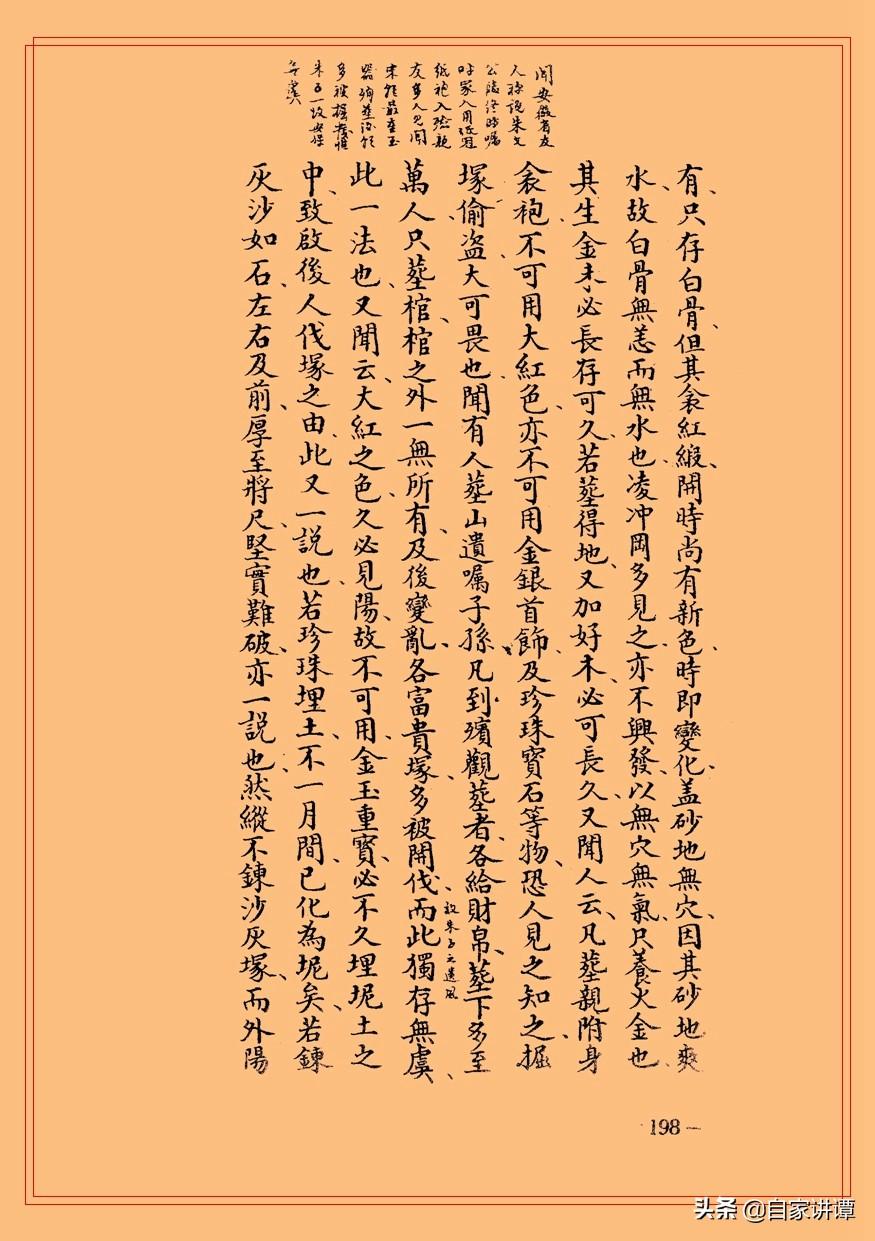 聞安徽省友
人稱說朱文
公臨終時囑
呼家人用紙冠
紙袍入殮親
友多人見聞
器殉葬
多被掘
朱子一墳安保
無虞
有只存白骨但其衾紅緞開時尚有新色時即變化盖砂地無穴因其砂地爽
水故白骨無恙而無水也凌冲岡多見之亦不興發以無穴無氣只養火金也
其生金未必長存可久若葬得地又加好未必可長久又聞人云凡葬親附身
衾袍不可用大紅色亦不可用金銀首飾及珍珠寶石等物恐人見之知之掘
塚偷盗大可畏也聞有人葬山遺囑子孫凡到殯觀葬者各給財帛葬下多至
萬人只葬棺棺之外一無所有及後變亂各富貴塚多被開伐而此獨存無虞
叙朱子之遺風
此一法也又聞云大紅之色久必見陽故不可用金玉重寳必不久埋坭土之
中致啟後人伐塚之由此又一説也若珍珠埋土不一月間已化為坭矣若鍊
灰沙如石左右及前厚至將尺堅實難破亦一説也然縱不鍊沙灰塚而外陽
198
头条 @自家讲谭